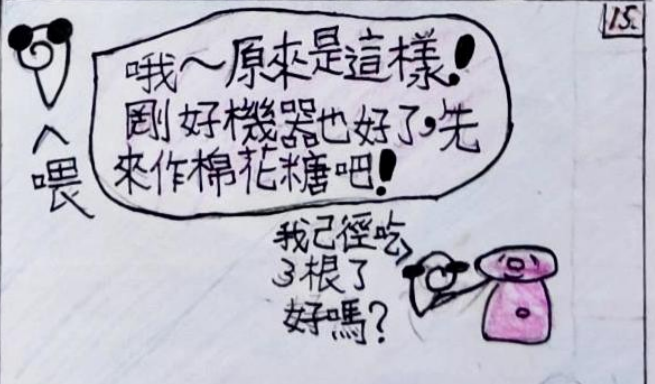 15.
哦～原來是這樣！
剛好機器也好了，先
來作棉花糖吧！
喂
我己徑吃
3根了
好嗎？